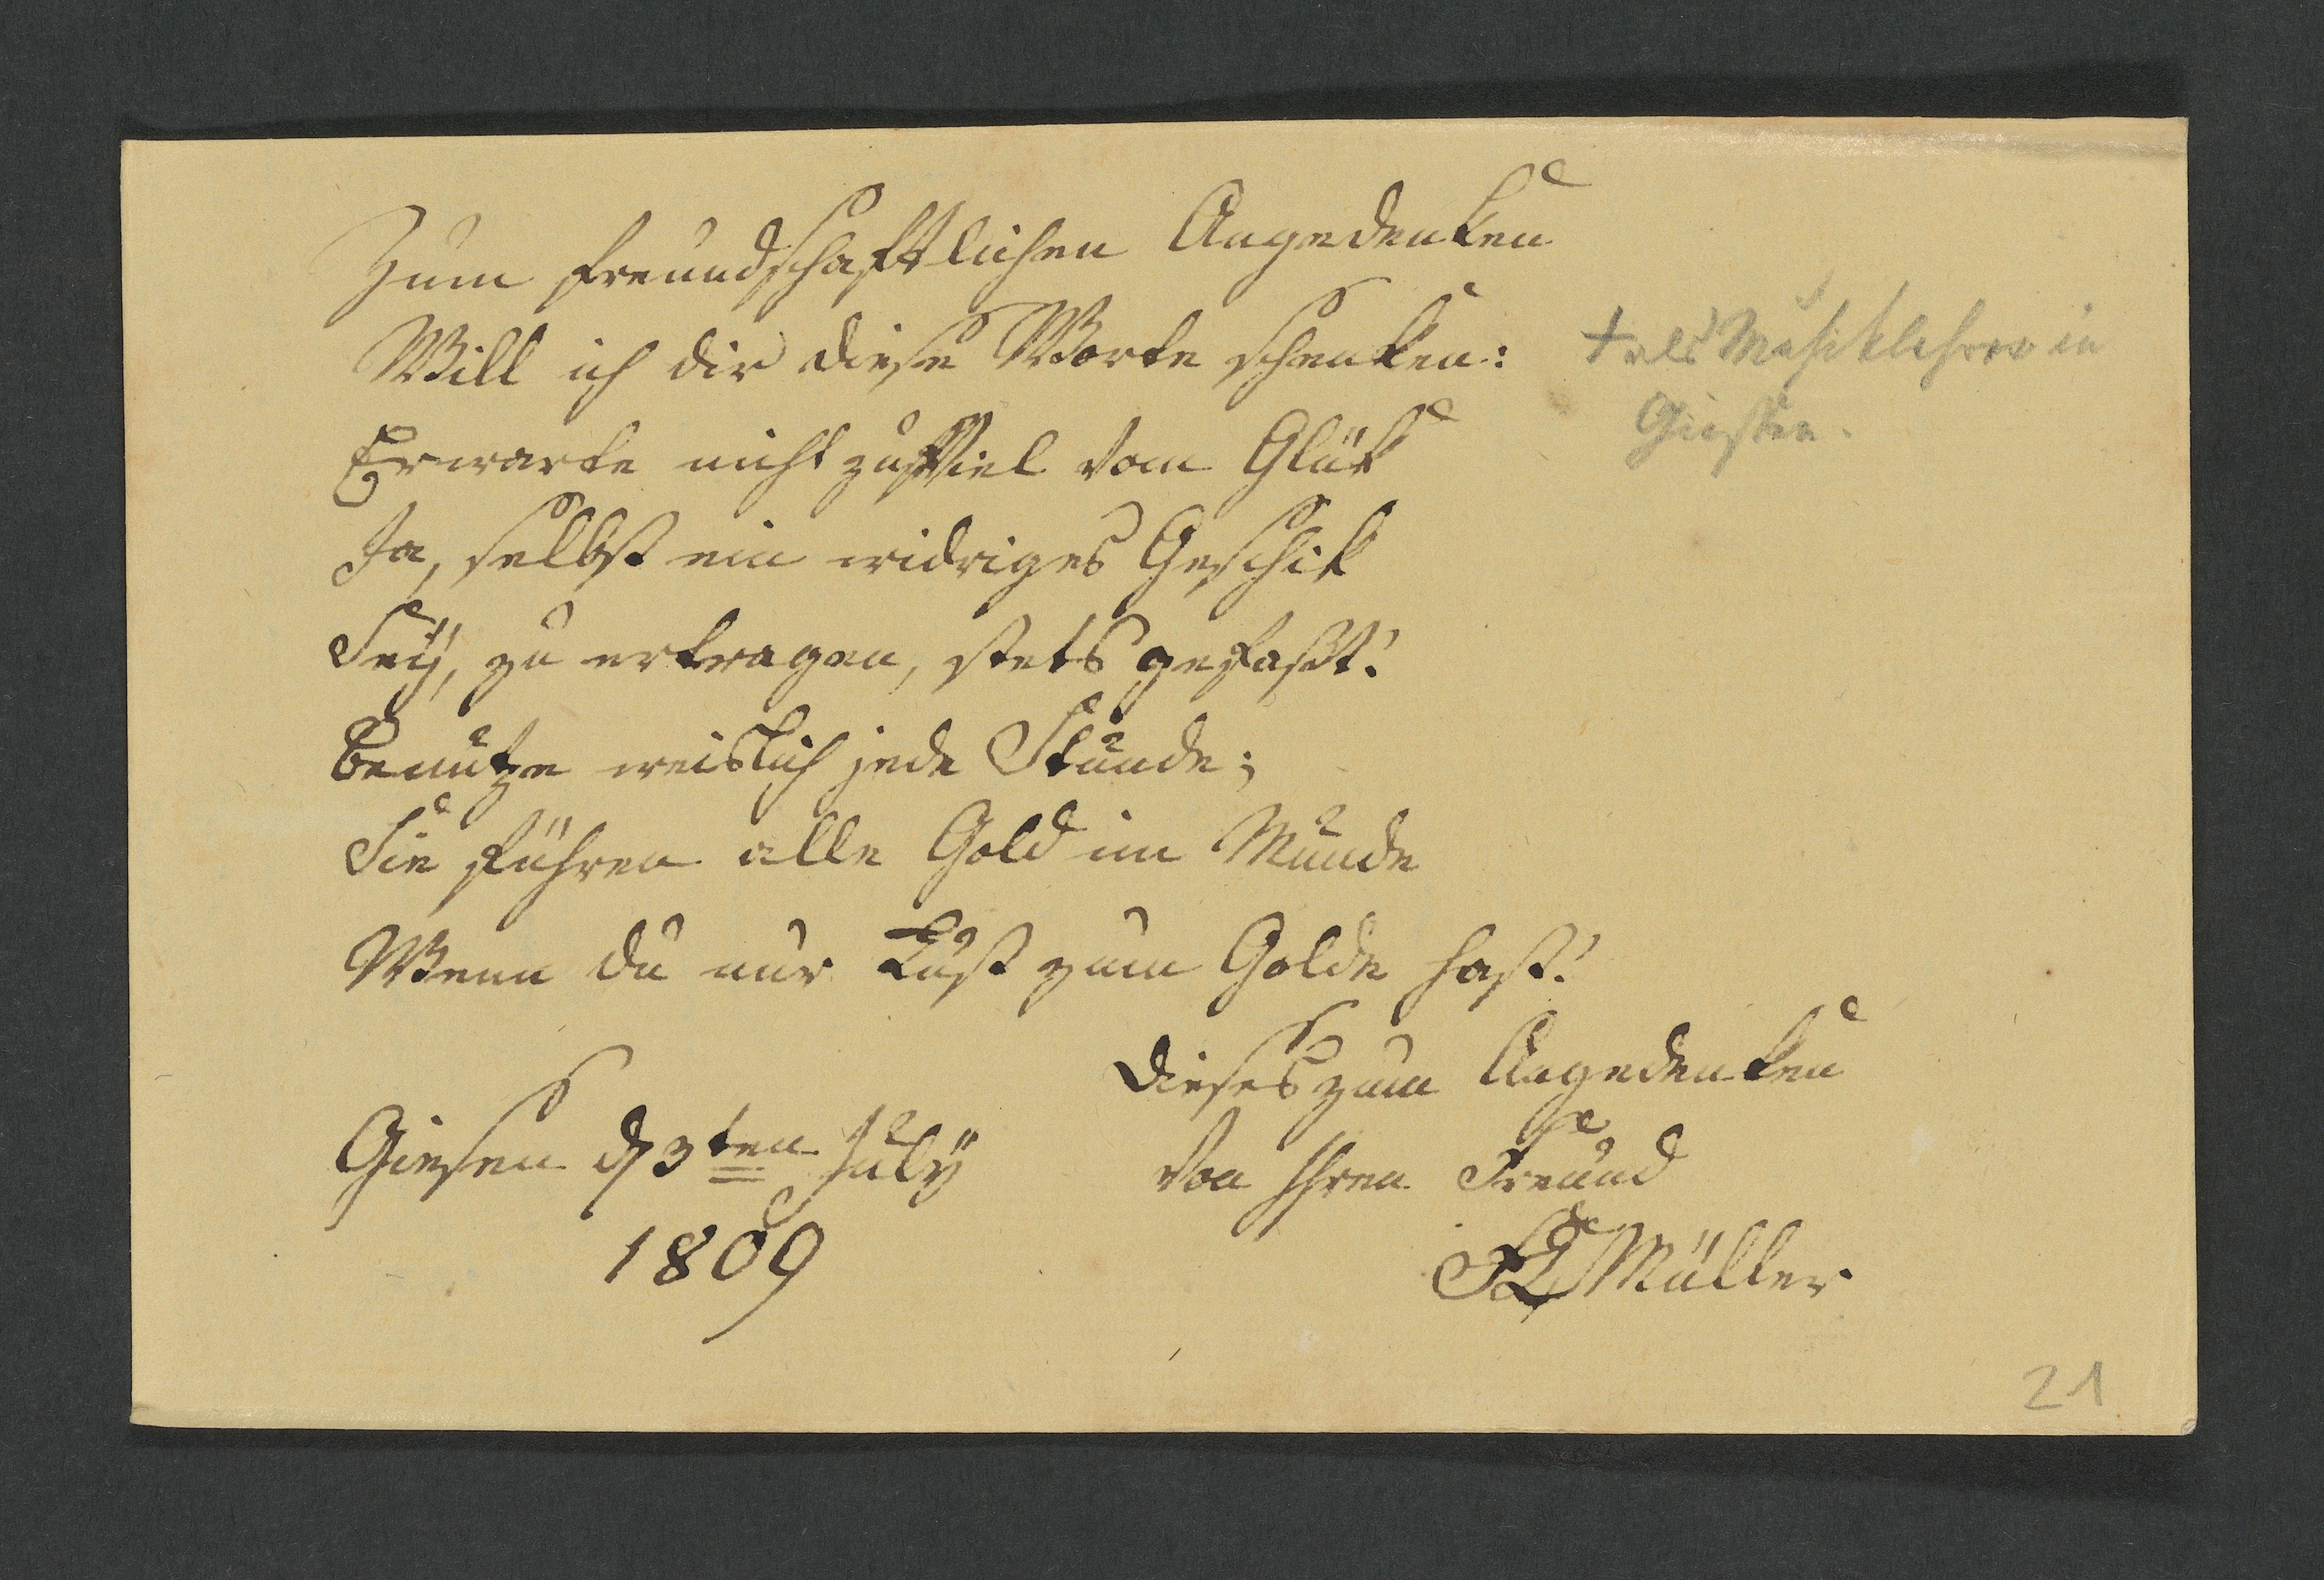 Zum freundschaftlichen Angedenken
Will ich dir diese Worte schenken:
Erwarte nicht zu Viel vom Glük
Ja, selbst ein widriges Geschik
Seÿ, zu ertragen, stets gefaßt!
Benutze weislich jede Stunde;
Sie führen alle Gold im Munde
Wenn du nur Lust zum Golde hast!
Dieses zum Angedenken
Von Ihren Freund
Müller
Giesen d 3ten Julÿ
1809
† als Musiklehrer in
Giessen.
21